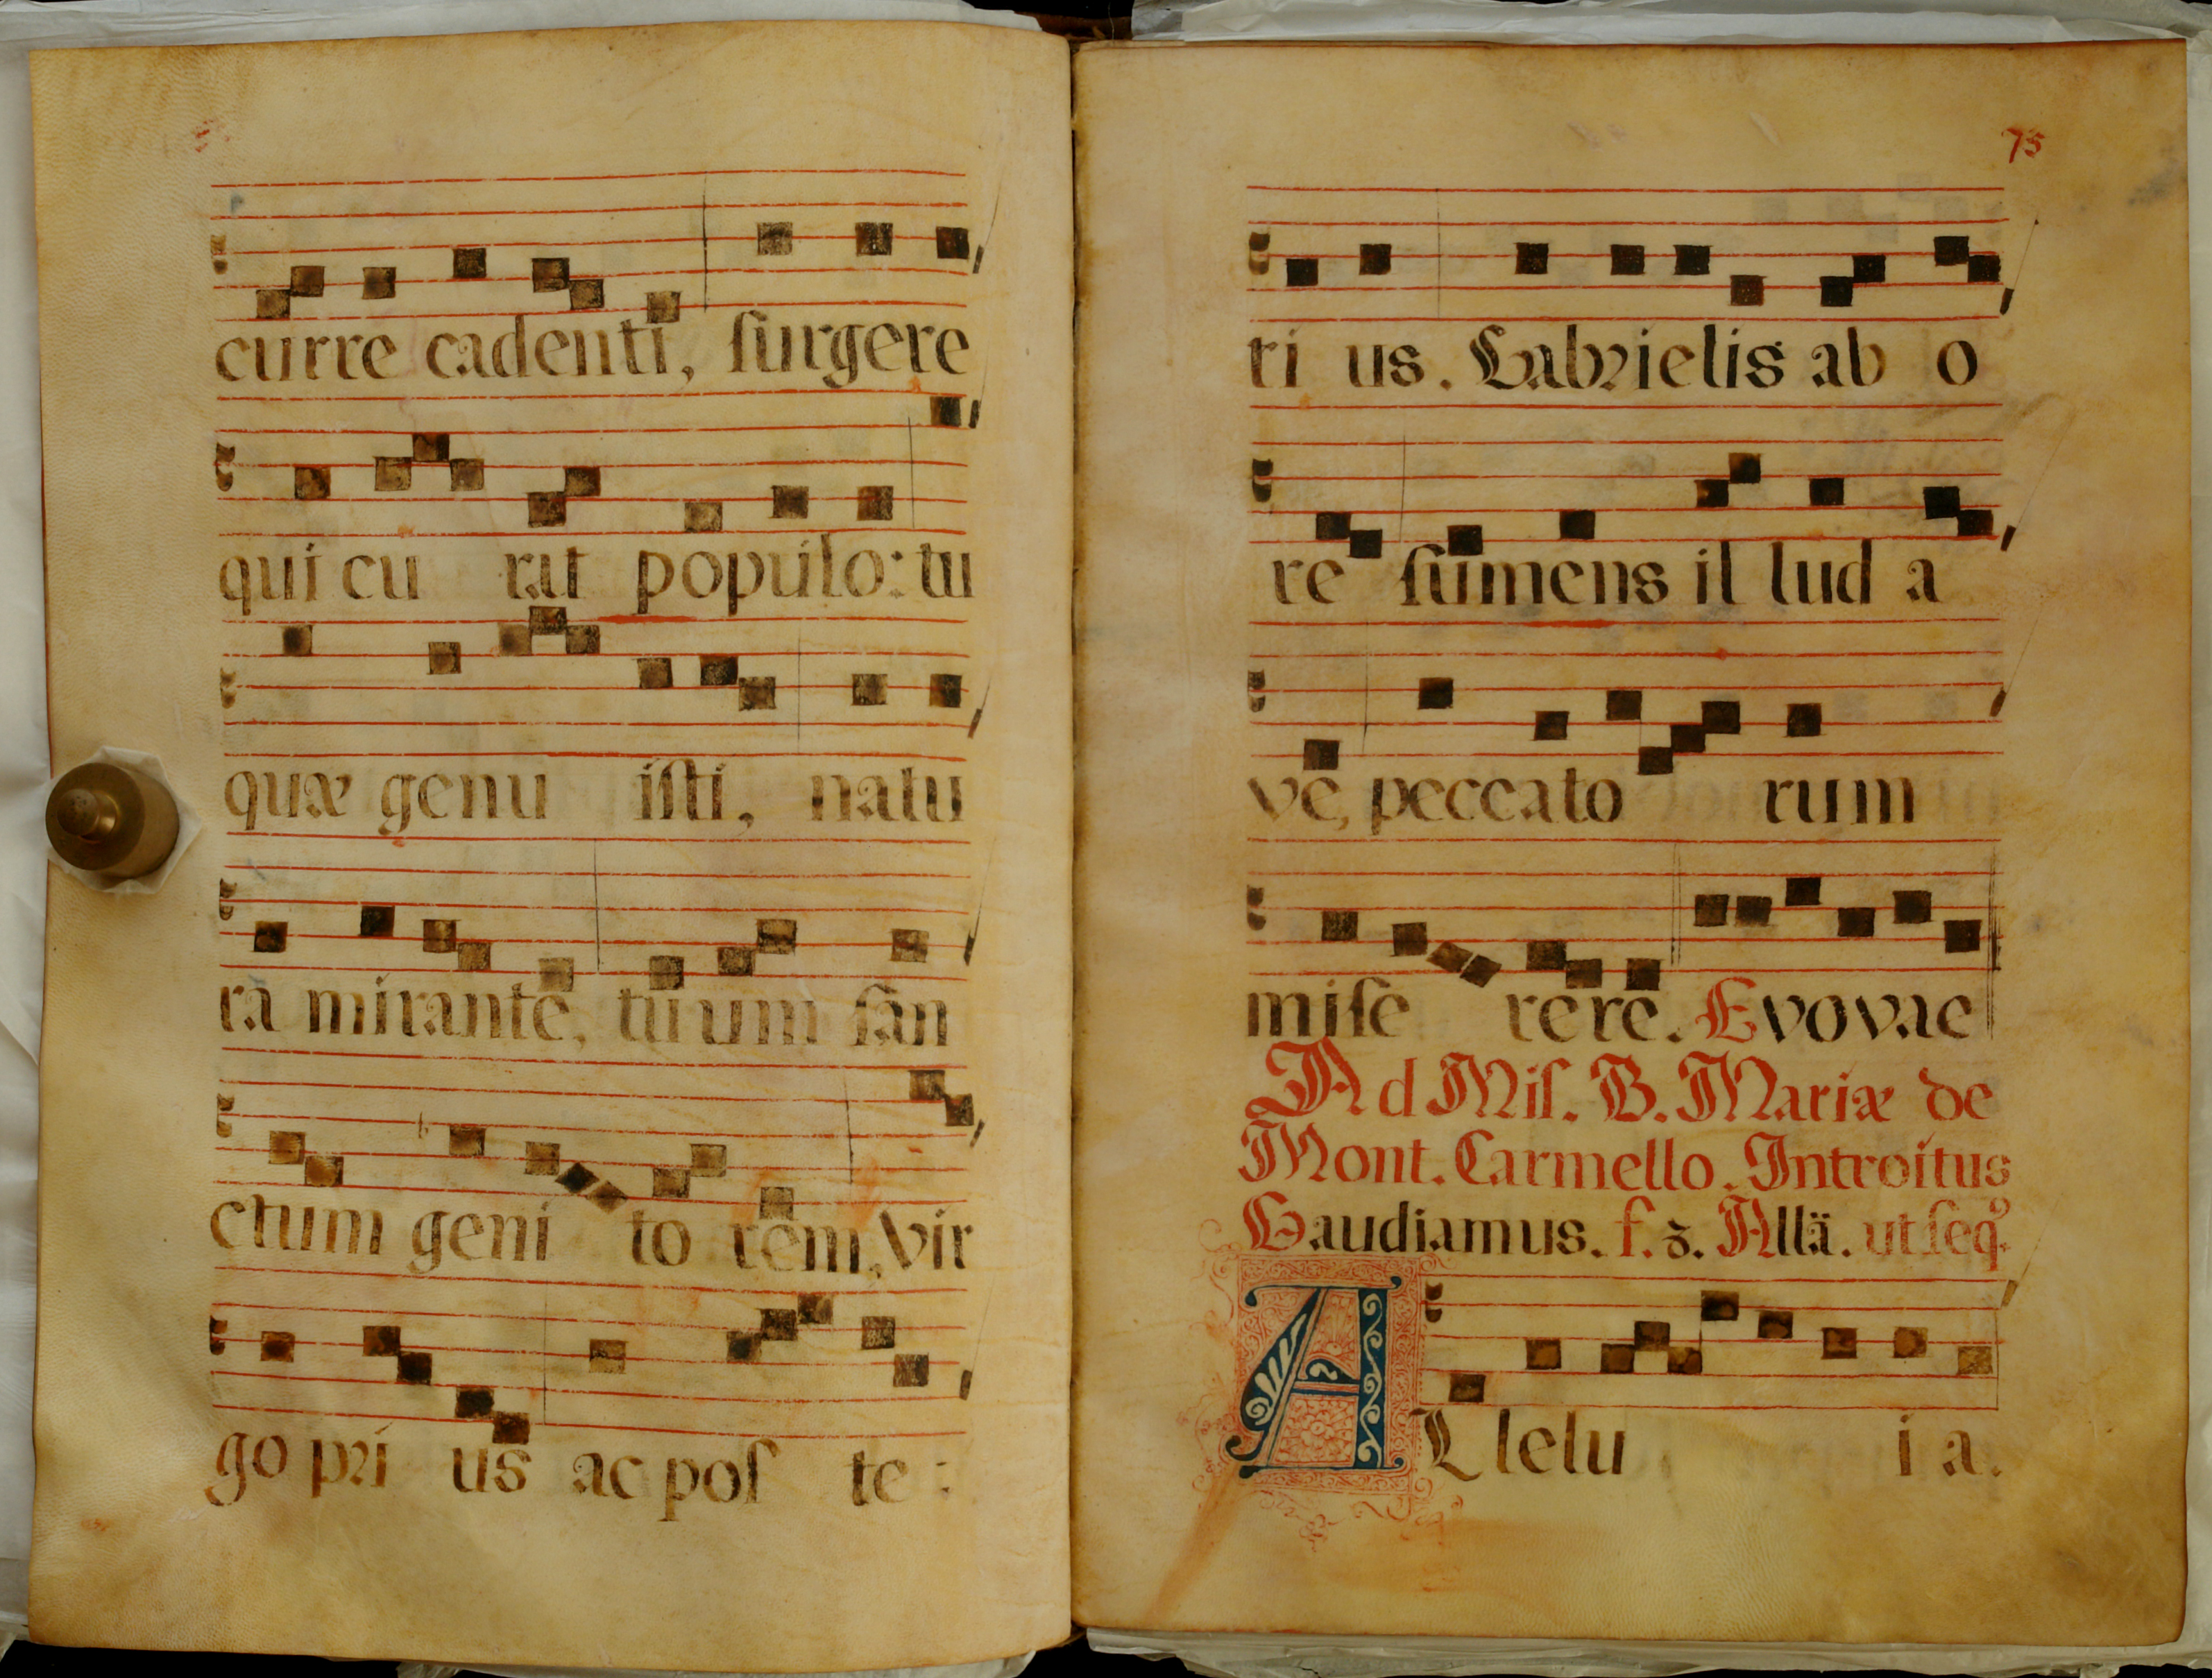 curre cadenti, ſurgere
qui cu rat populo: tu
quæ genu iſti, natu
ra mirante, tuum ſan
ctum geni to rem, Vir
go pri us ac poſ te :
75
ri us. Gabrielis ab o
re ſumens il lud a
ve, peccato rum
miſe rere. Evovae
Ad Miſ. B. Mariæ de
Mont. Carmello. Introitus
Gaudiamus. f. 3. Allä. ut ſeqͦ.
ALlelu i a.